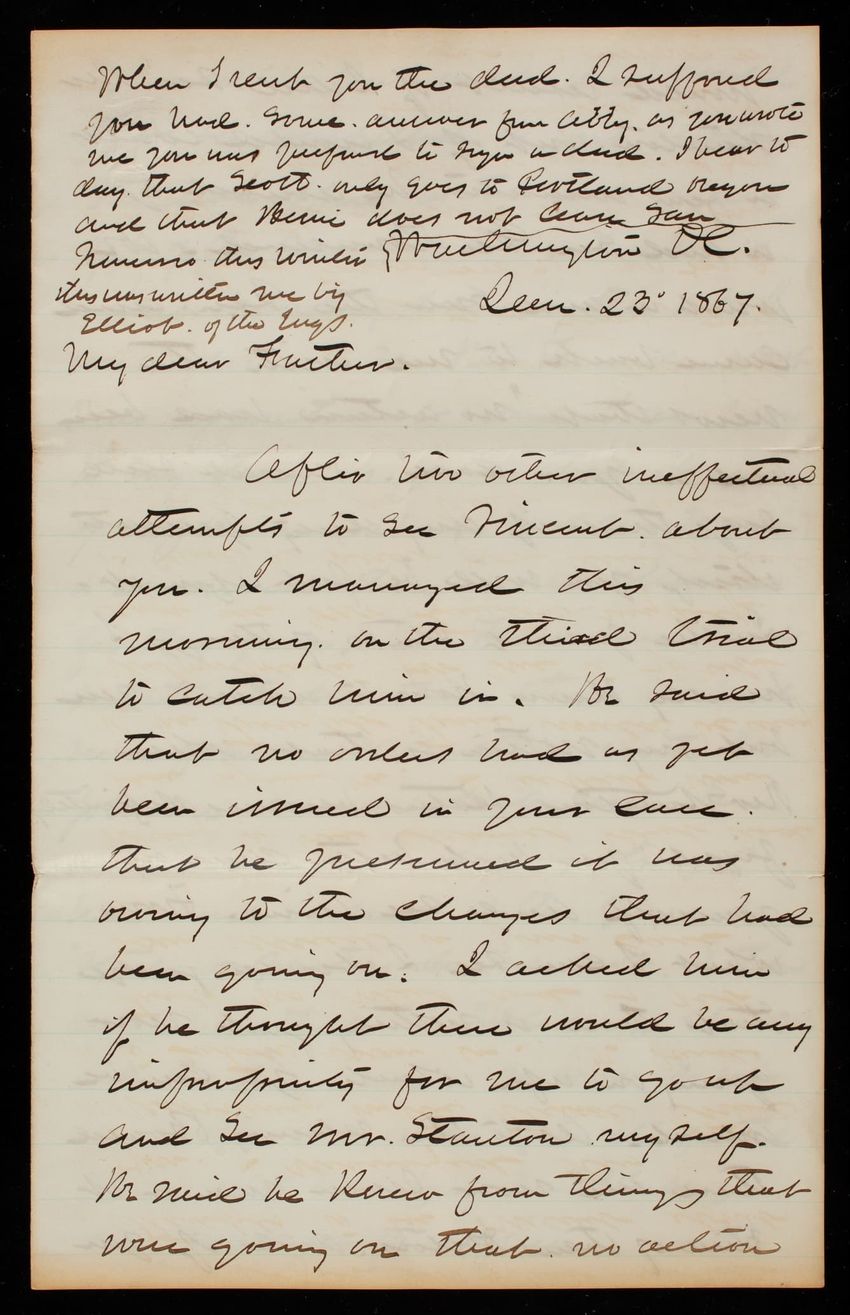 When I sent you the deed. I supposed
you had. some. answer from Abby. as you wrote
me you was prepared to sign a deed. I hear to
day. that Scott. only goes to Portland Oregon
and that Bernie does not leave San
Francisco this winter
this was written me by
Elliot. of the Engs.
Washington DC.
Decm. 23d 1867.
My dear Father.
After two other ineffectual
attempts to see Vincent. about
you. I managed this
morning. on the third trial
to catch him in. He said
that no orders had as yet
been issued in your case.
that he presumed it was
owing to the changes that had
been going on. I asked him
if he thought there would be any
impropriety for me to go up
and see Mr. Stanton myself.
He said he knew from things that
were going on that. no action